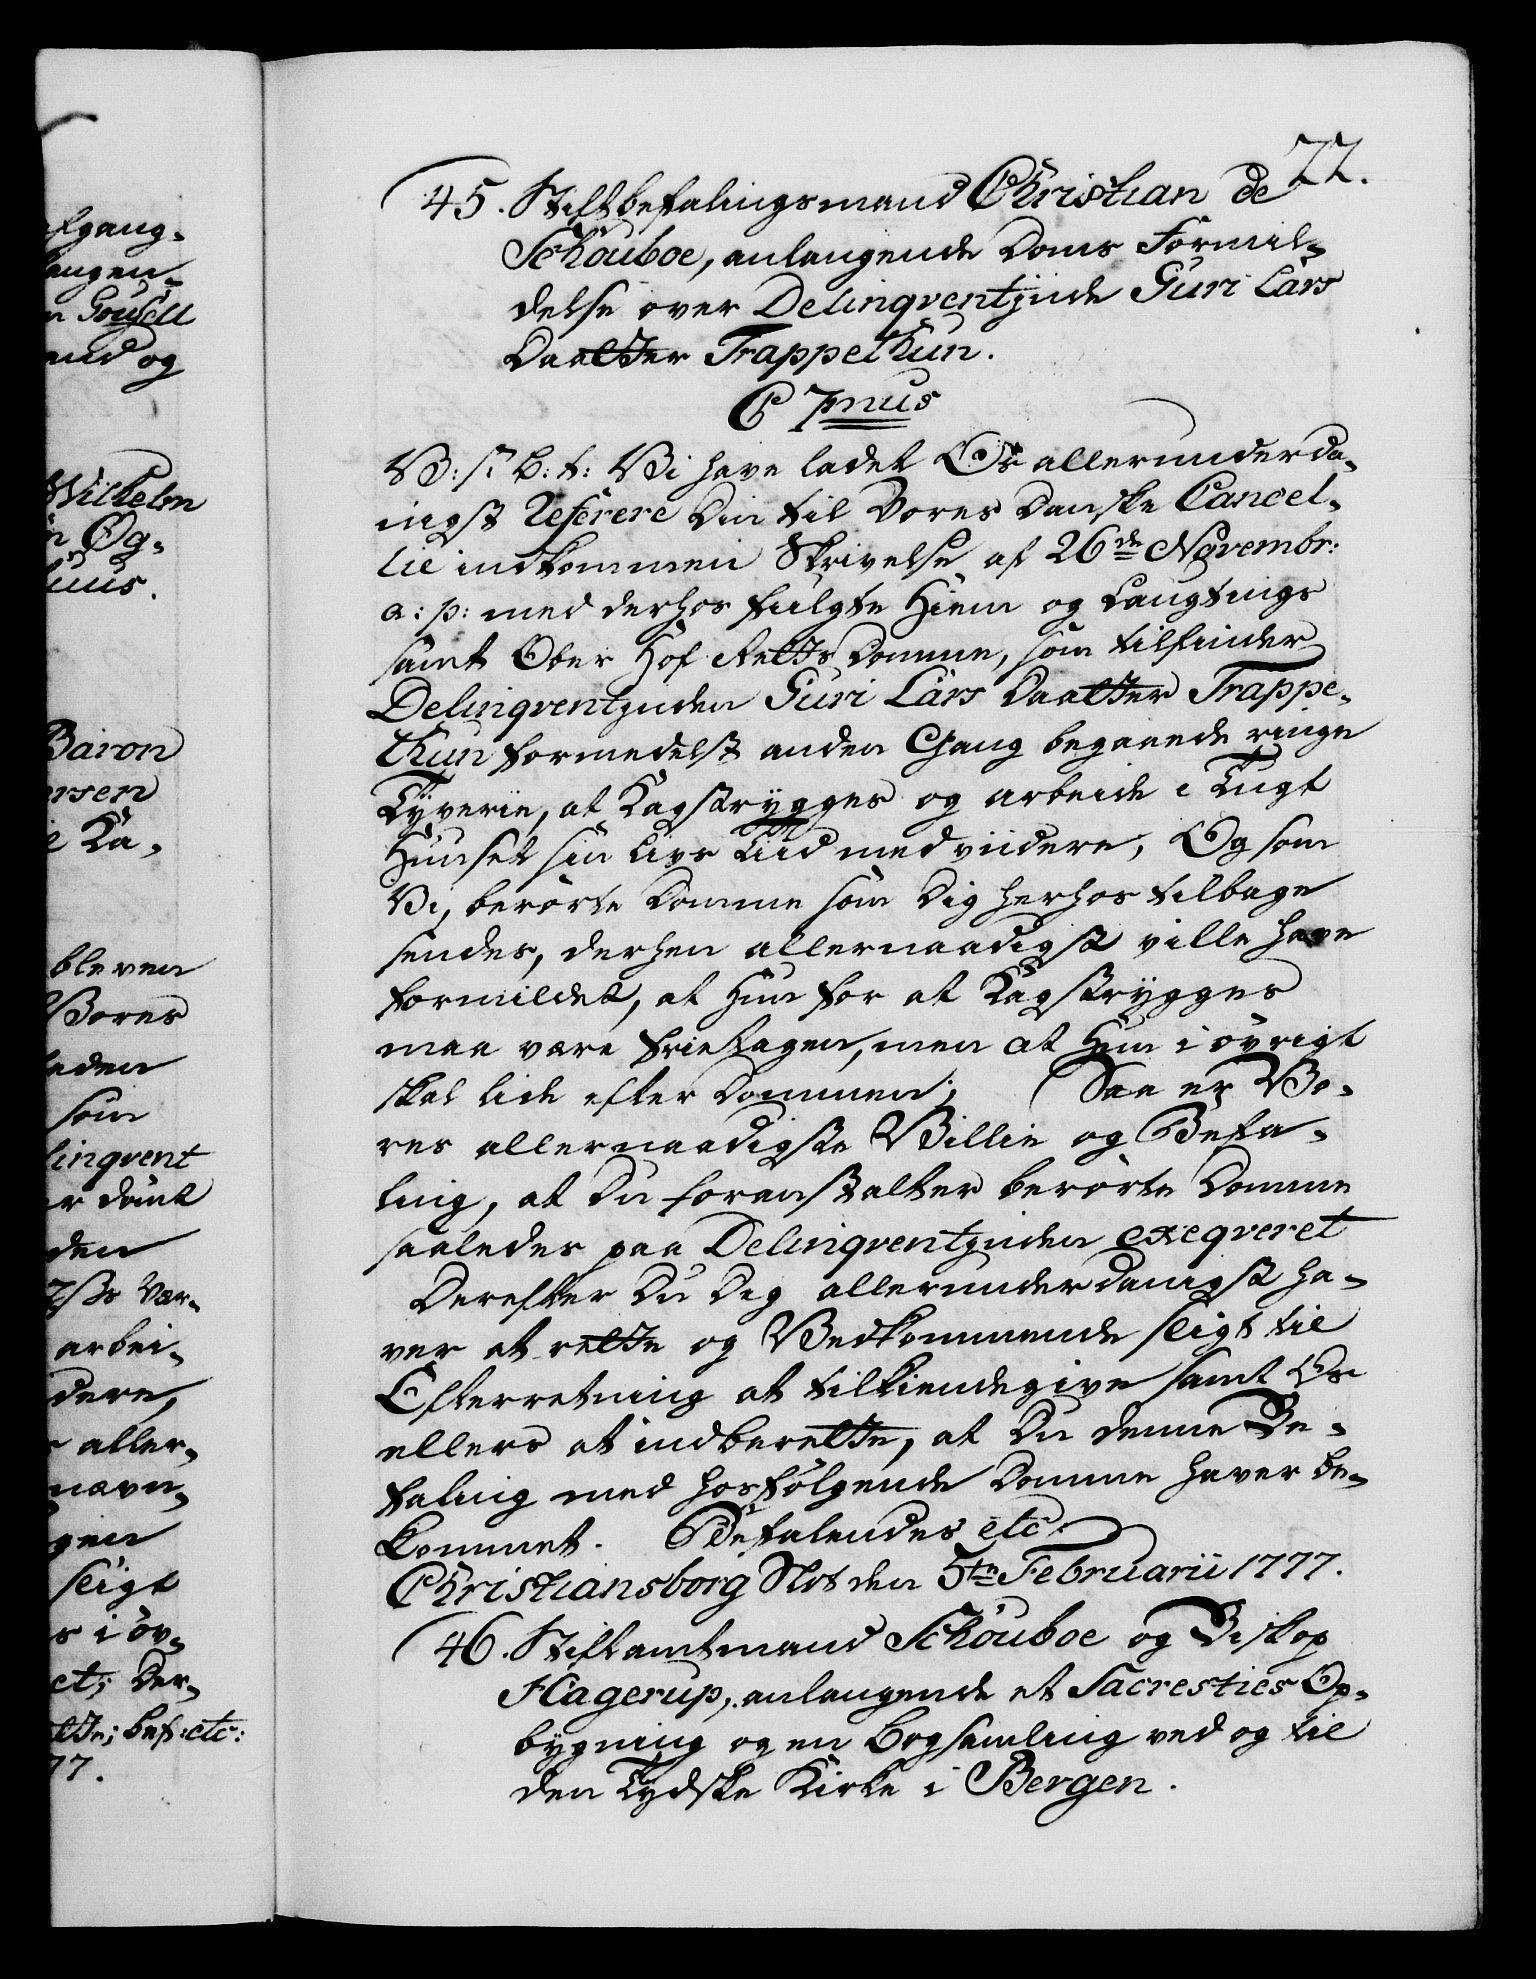 22.
45. Stiftbefalingsmand Christian de
Schouboe, anlangende Doms Formil-
delse over Delinqventjnde Guri Lars
Daatter Trappethun.
C 7mus
V: s: b: t: Vi have ladet Os allerunderda-
nigst Referere Din til Vores Danske Cancel-
lie indkommen Skrivelse af 26de Novembr:
a: p: med derhos fulgte Hiem og Laugtings
samt Ober Hof Retts Domme, som tilfinder
Delinqventjnden Guri Lars Daatter Trappe-
thun formedelst anden Gang begaaede ringe
Tyverie, at Kagstrygges og arbeide i Tugt
Huuset sin Livs Tiid med viidere, Og som
Vi, berørte Domme som Dig herhos tilbage
sendes, derhen allernaadigst ville have
formildet, at Hun for at Kagstrygges
maa være frietagen, men at Hun i øvrigt
skal lide efter Dommen; Saa er Vo-
res allernaadigste Villie og Befa-
ling, at Du foranstalter berørte Domme
saaledes paa Delinqventjnden exeqveret
Derefter Du Dig allerunderdanigst ha-
ver at rette og Vedkommende sligt til
Efterretning at tilkiendegive samt Os
ellers at indberette, at Du denne Be-
faling med hosfølgende Domme haver be-
kommet. Befalendes etc.
Christiansborg Slot den 5te Februarii 1777.
46. Stiftamtmand Schouboe og Biskop
Hagerup, anlangende et Sacresties Op-
bygning og en Bogsamling ved og til
den Tydske Kirke i Bergen.